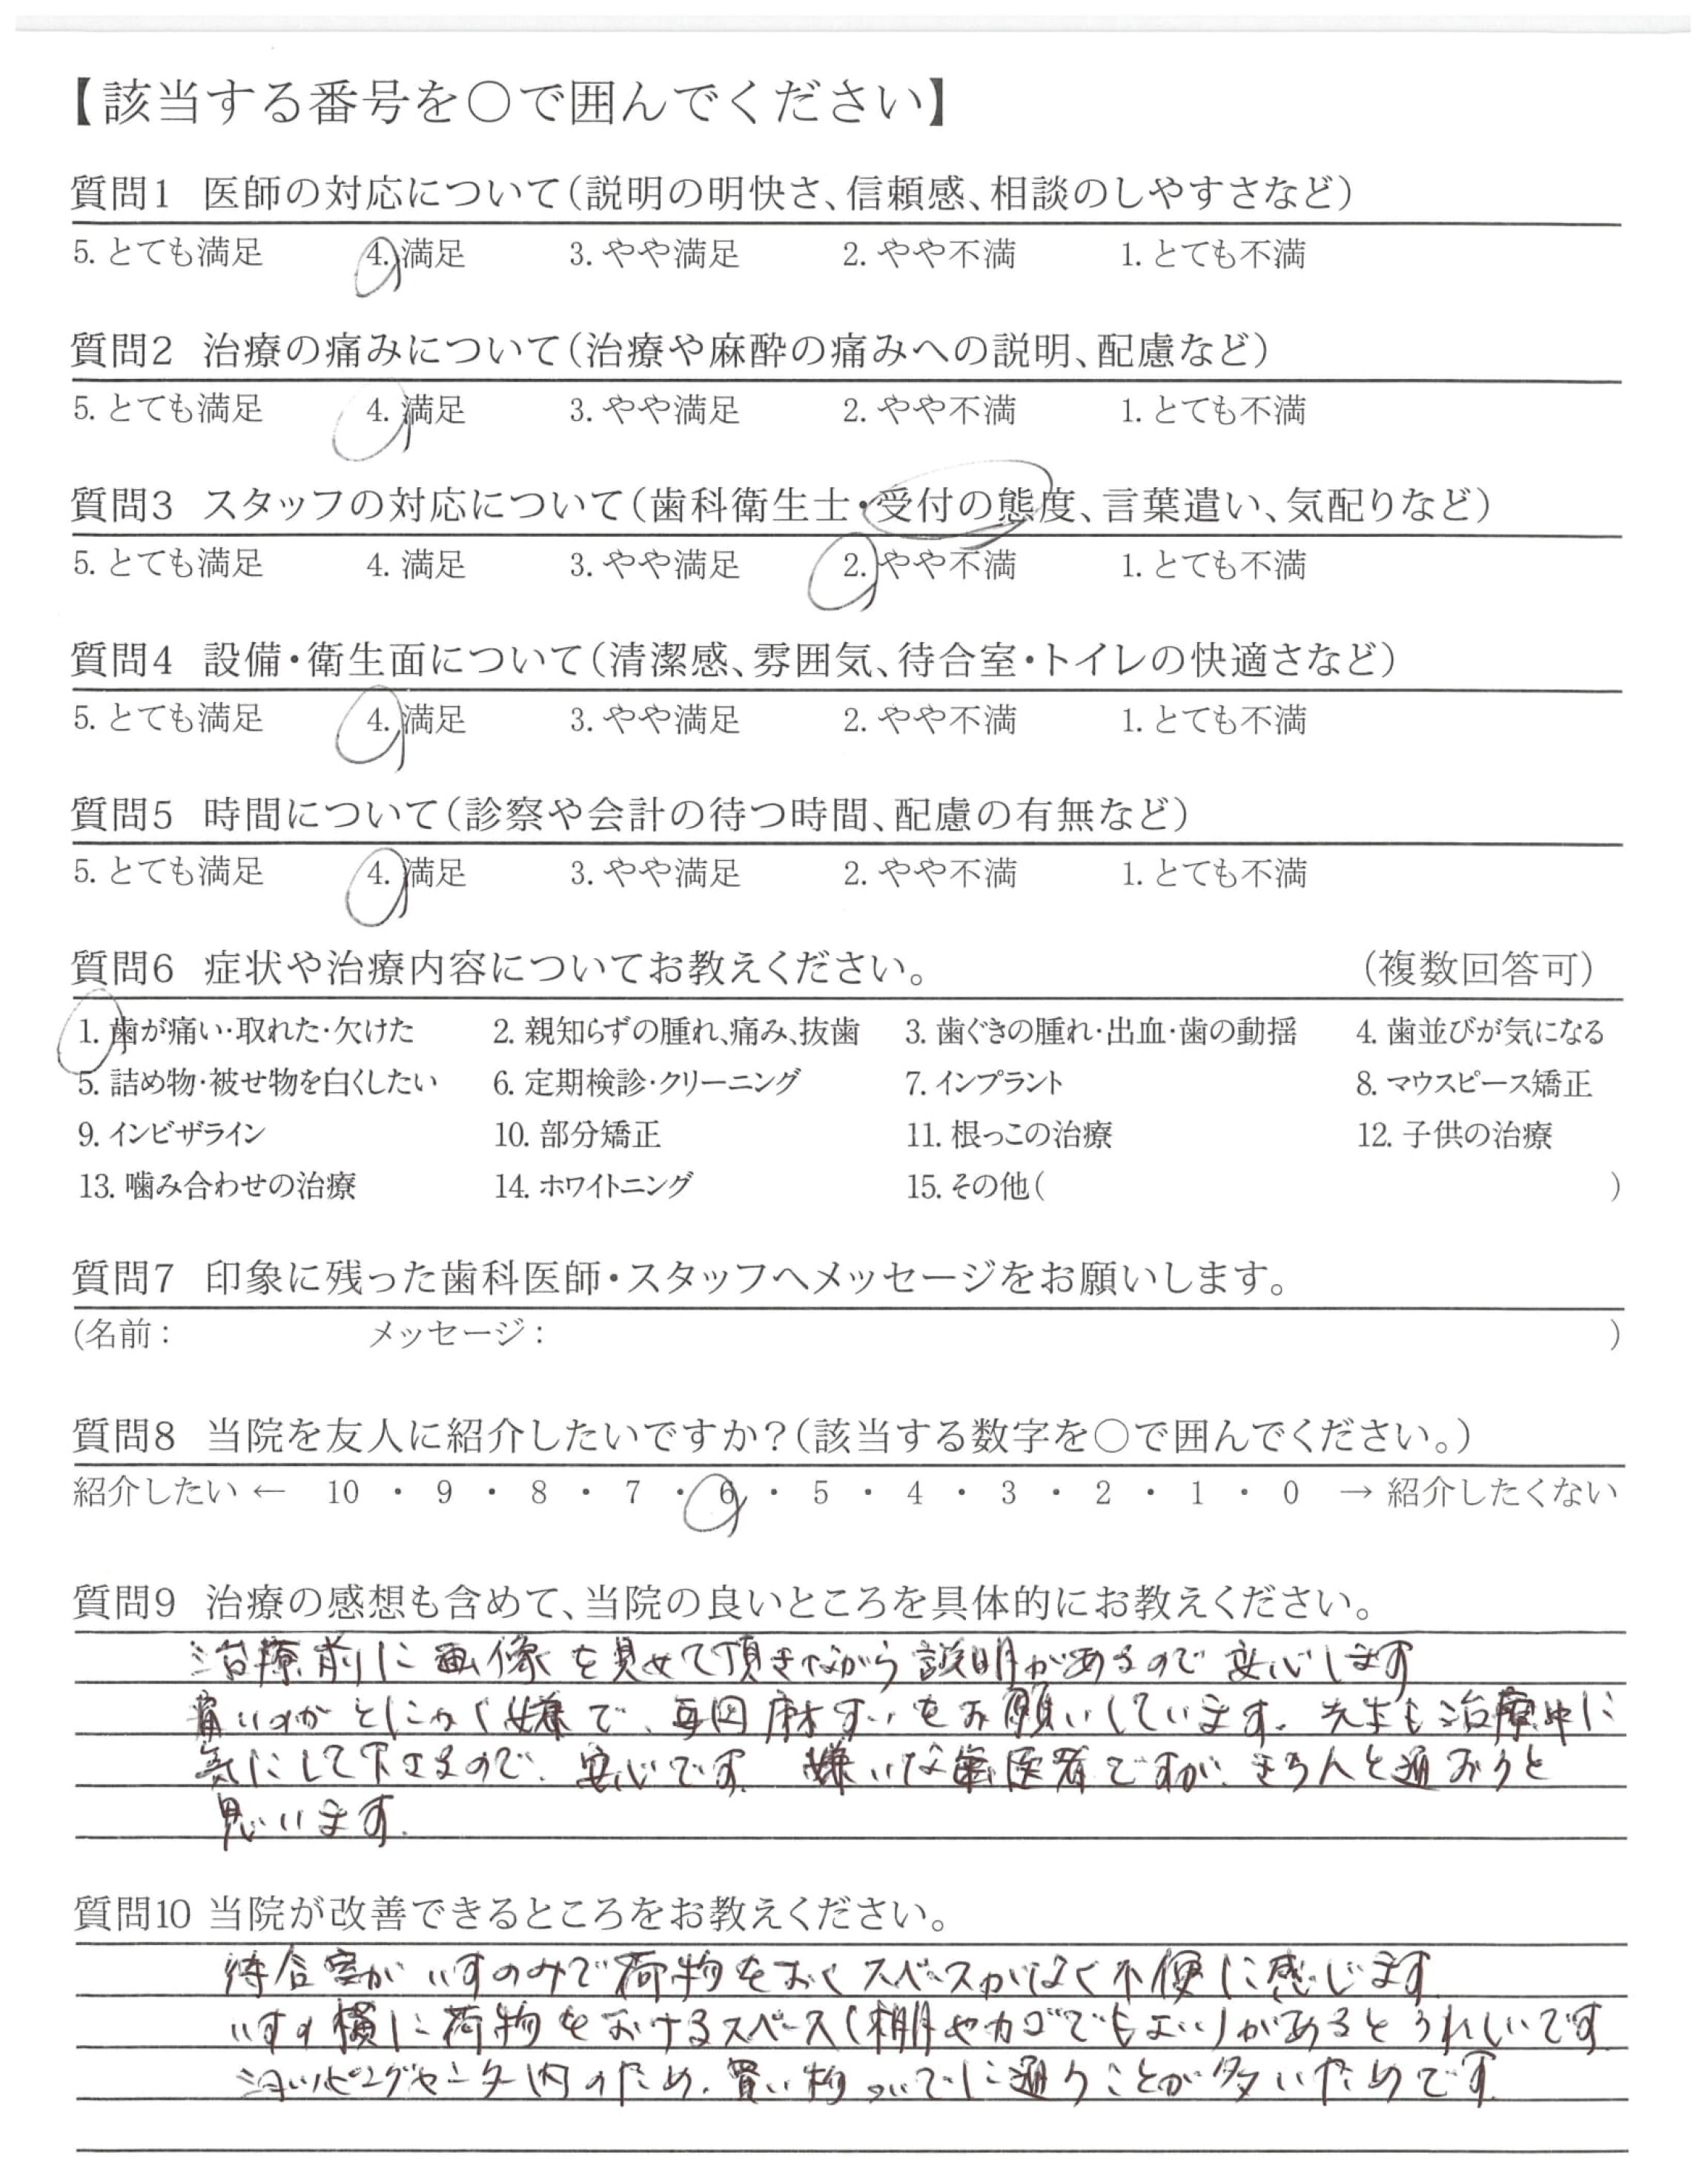 【該当する番号を○で囲んでください】
質問1 医師の対応について(説明の明快さ、信頼感、相談のしやすさなど)
5. とても満足 4. 満足 3. やや満足 2. やや不満 1. とても不満
質問2 治療の痛みについて(治療や麻酔の痛みへの説明、配慮など)
5. とても満足 4. 満足 3. やや満足 2. やや不満 1. とても不満
質問3 スタッフの対応について(歯科衛生士・受付の態度、言葉遣い、気配りなど)
5. とても満足 4. 満足 3. やや満足 2. やや不満 1. とても不満
質問4 設備・衛生面について(清潔感、雰囲気、待合室・トイレの快適さなど)
5. とても満足 4. 満足 3. やや満足 2. やや不満 1. とても不満
質問5 時間について(診察や会計の待つ時間、配慮の有無など)
5. とても満足 4. 満足 3. やや満足 2. やや不満 1. とても不満
質問6 症状や治療内容についてお教えください。 (複数回答可)
1. 歯が痛い・取れた・欠けた 2. 親知らずの腫れ、痛み、抜歯 3. 歯ぐきの腫れ・出血・歯の動揺 4. 歯並びが気になる
5. 詰め物・被せ物を白くしたい 6. 定期検診・クリーニング 7. インプラント 8. マウスピース矯正
9. インビザライン 10. 部分矯正 11. 根っこの治療 12. 子供の治療
13. 噛み合わせの治療 14. ホワイトニング 15. その他( )
質問7 印象に残った歯科医師・スタッフへメッセージをお願いします。
(名前: メッセージ: )
質問8 当院を友人に紹介したいですか?(該当する数字を○で囲んでください。)
紹介したい ← 10 ・ 9 ・ 8 ・ 7 ・ 6 ・ 5 ・ 4 ・ 3 ・ 2 ・ 1 ・ 0 → 紹介したくない
質問9 治療の感想も含めて、当院の良いところを具体的にお教えください。
治療前に画像を見せて頂きながら説明があるので安心します
痛いのがとにかく嫌で、毎回麻すいをお願いしています。先生も治療中に
気にして下さるので、安心です。嫌いな歯医者ですが、きちんと通おうと
思います。
質問10 当院が改善できるところをお教えください。
待合室がいすのみで荷物をおくスペースがなく不便に感じます
いすの横に荷物をおけるスペース(棚やカゴでもよい)があるとうれしいです
ショッピングセンター内のため、買い物ついでに通うことが多いためです。